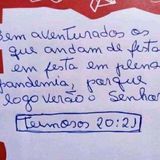 Bem aventurados os
que andam de festa
em festa em plena
pandemia, porque
logo verão o Senhor
Teimosos 20:21